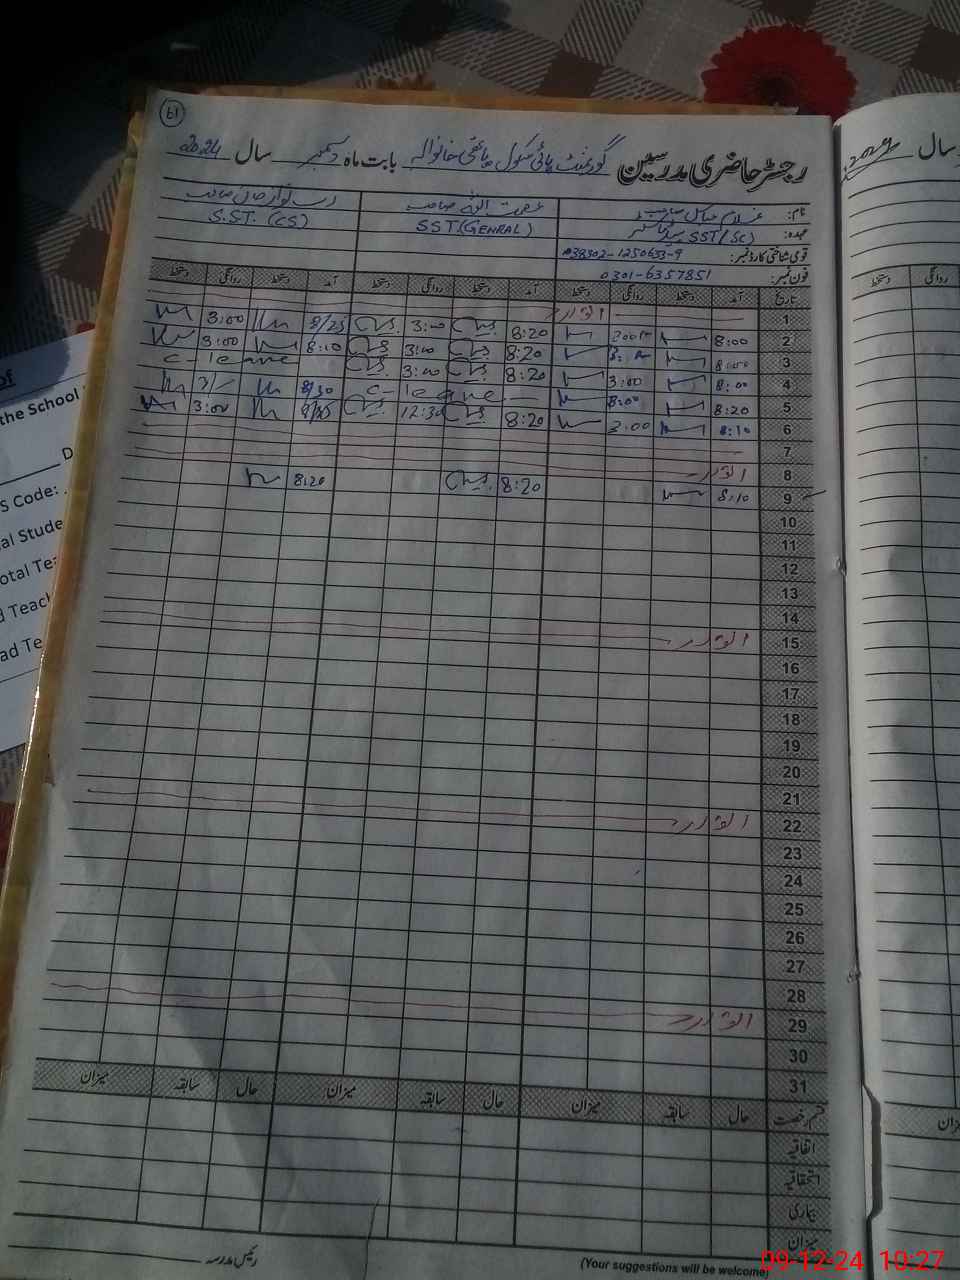 61
رجسٹر حاضری مدرسین گورنمنٹ ہائی سکول ہاتھی خانوالہ بابت ماہ دسمبر سال 2024
نام: غلام عباس صاحب عصمت اللہ صاحب رب نواز خان صاحب
عہدہ: SST/Sc ہیڈماسٹر SST.(GENRAL) S.ST. (CS)
قومی شناختی کارڈ نمبر: 38302-1250653-9
فون نمبر: 0301-6357851
تاریخ آمد دستخط روانگی دستخط آمد دستخط روانگی دستخط آمد دستخط روانگی دستخط
1 اتوار
2 8:00 8:20 3:00 8/25 3:00
3 8:00 8:20 3:00 8:10 3:00
4 8:00 3:00 8:20 3:00 c-leave
5 8:20 8:00 c-leave 8/30
6 8:10 2:00 8:20 12:30 8/25 3:00
7
8 اتوار
9 8:10 8:20 8:20
10
11
12
13
14
15 اتوار
16
17
18
19
20
21
22 اتوار
23
24
25
26
27
28
29 اتوار
30
31
قسم رخصت حال سابقہ میزان حال سابقہ میزان حال سابقہ میزان
اتفاقیہ
استحقاقیہ
بیماری
میزان
رئیس مدرسہ
(Your suggestions will be welcome)
سال
روانگی دستخط
میزان
of
the School
D
S Code:
al Stude
otal Tea
d Teach
ad Te
09-12-24 10:27